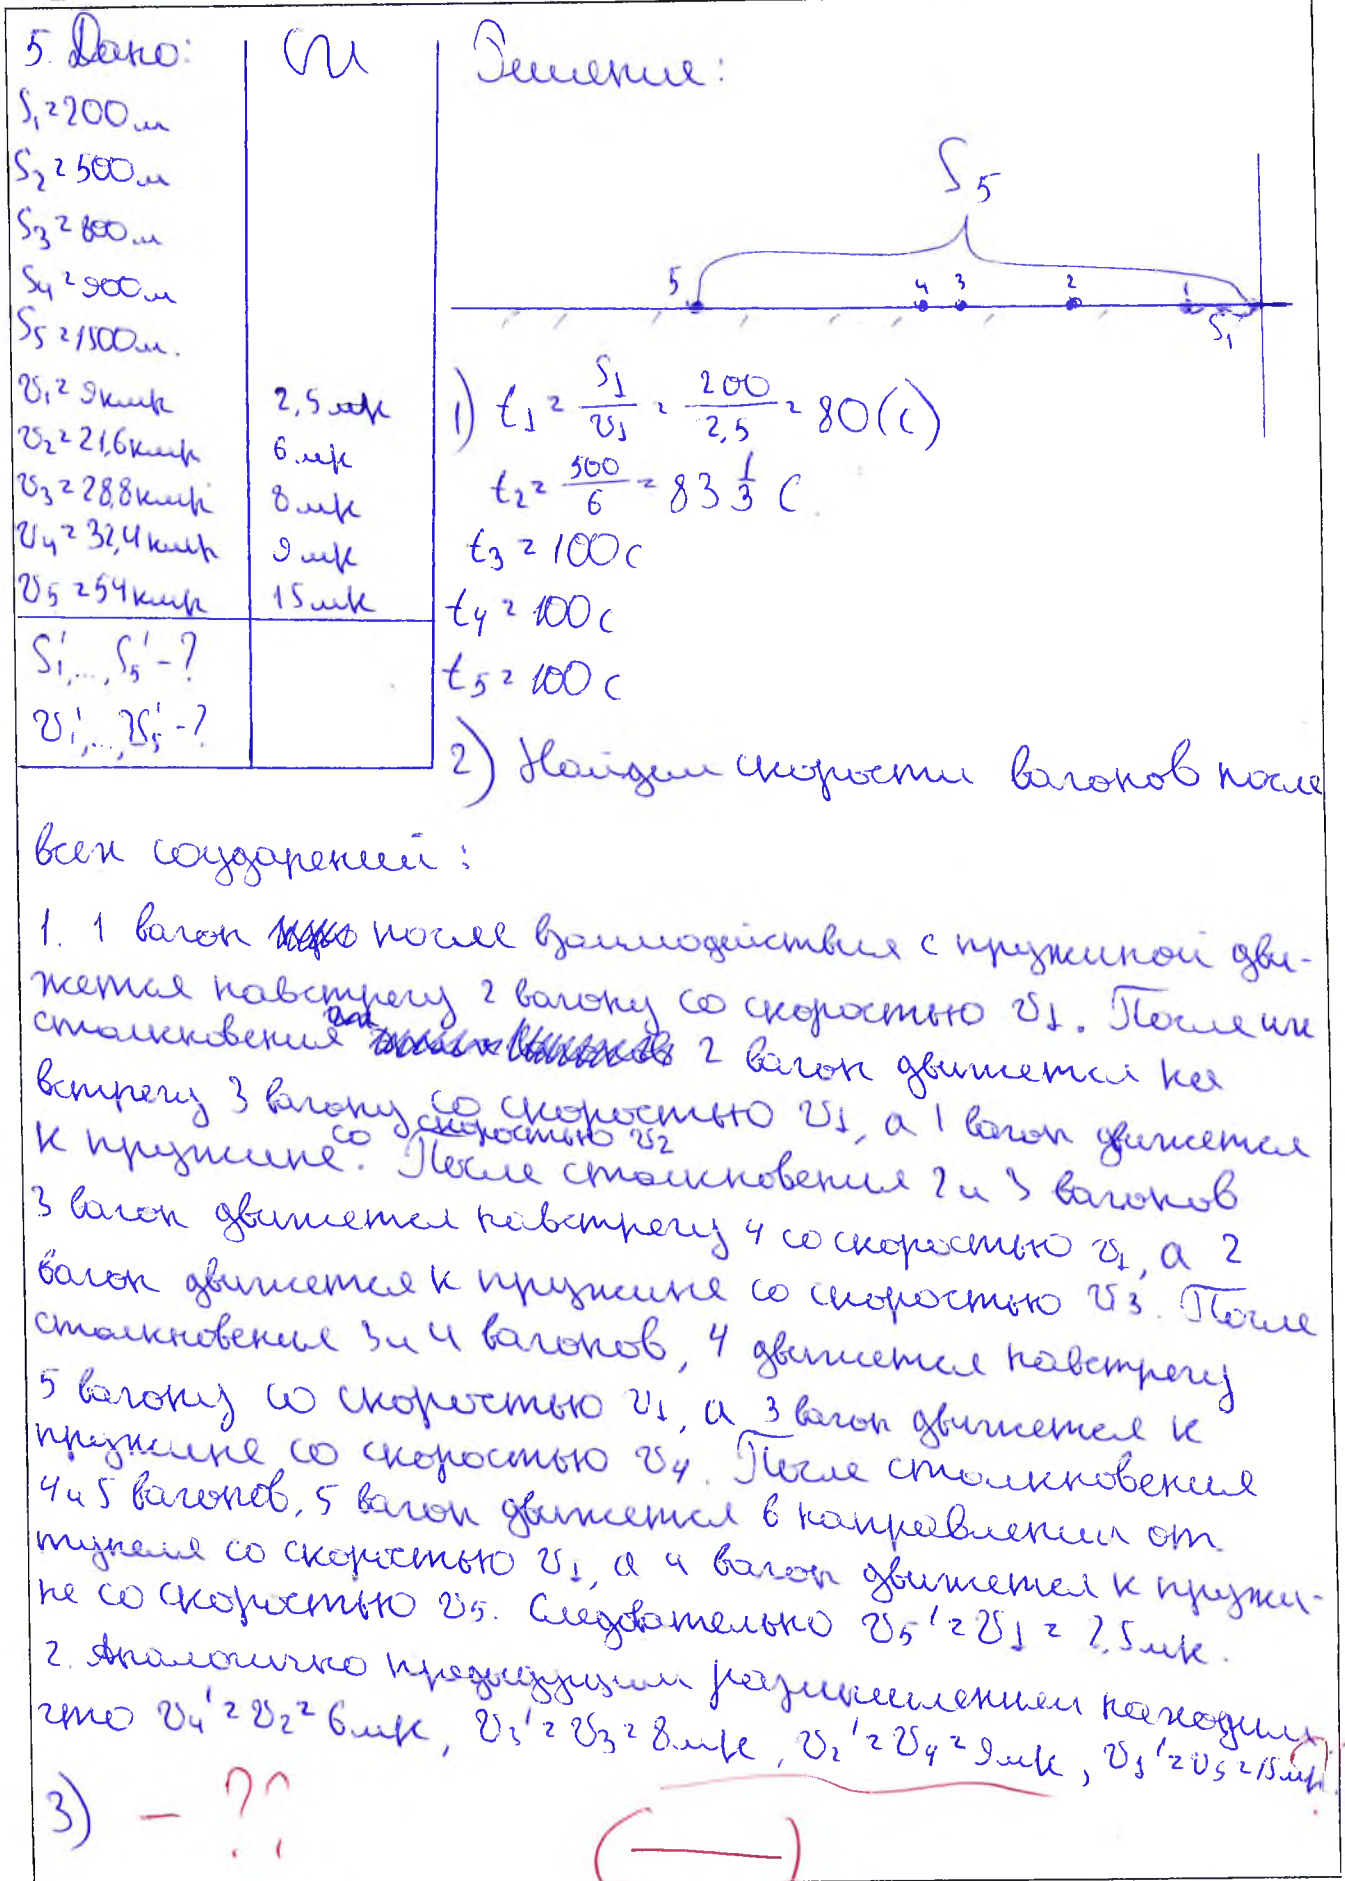 5. Дано:
СИ
Решение:
S₁ = 200 м
S₂ = 500 м
S₃ = 800 м
S₄ = 900 м
S₅ = 1500 м.
v₁ = 9 км/ч
2,5 м/с
v₂ = 21,6 км/ч
6 м/с
v₃ = 28,8 км/ч
8 м/с
v₄ = 32,4 км/ч
9 м/с
v₅ = 54 км/ч
15 м/с
S₁',..., S₅' - ?
v₁',..., v₅' - ?
S₅
5 4 3 2 1
S₁
1) t₁ = S₁/v₁ = 200/2,5 = 80 (с)
t₂ = 500/6 = 83 1/3 с
t₃ = 100 с
t₄ = 100 с
t₅ = 100 с
2) Найдем скорости вагонов после
всех соударений:
1. 1 вагон после взаимодействия с пружиной дви-
жется навстречу 2 вагону со скоростью v₁. После их
столкновения 2 вагон движется на
встречу 3 вагону со скоростью v₁, а 1 вагон движется
к пружине со скоростью v₂. После столкновения 2 и 3 вагонов
3 вагон движется навстречу 4 со скоростью v₁, а 2
вагон движется к пружине со скоростью v₃. После
столкновения 3 и 4 вагонов, 4 движется навстречу
5 вагону со скоростью v₁, а 3 вагон движется к
пружине со скоростью v₄. После столкновения
4 и 5 вагонов, 5 вагон движется в направлении от
со скоростью v₁, а 4 вагон движется к пружи-
не со скоростью v₅. Следовательно v₅' = v₁ = 2,5 м/с.
2. Аналогично предыдущим размышлениям находим
что v₄' = v₂ = 6 м/с, v₃' = v₃ = 8 м/с, v₂' = v₄ = 9 м/с, v₁' = v₅ = 15 м/с
3) - ??
(—)